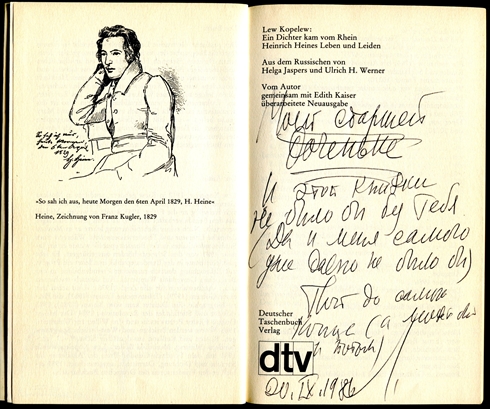 So sah ich aus,
heute Morgen
den 6ten April
1829
H. Heine
»So sah ich aus, heute Morgen den 6ten April 1829, H. Heine«
Heine, Zeichnung von Franz Kugler, 1829
Lew Kopelew:
Ein Dichter kam vom Rhein
Heinrich Heines Leben und Leiden
Aus dem Russischen von
Helga Jaspers und Ulrich H. Werner
Vom Autor
gemeinsam mit Edith Kaiser
überarbeitete Neuausgabe
Моей старшей
доченьке
И этой книжки
не было бы без тебя
(Да и меня самого
уже давно не было бы)
Твой до самого
конца (а может
и потом)
Deutscher
Taschenbuch
Verlag
dtv
20.IX.1986